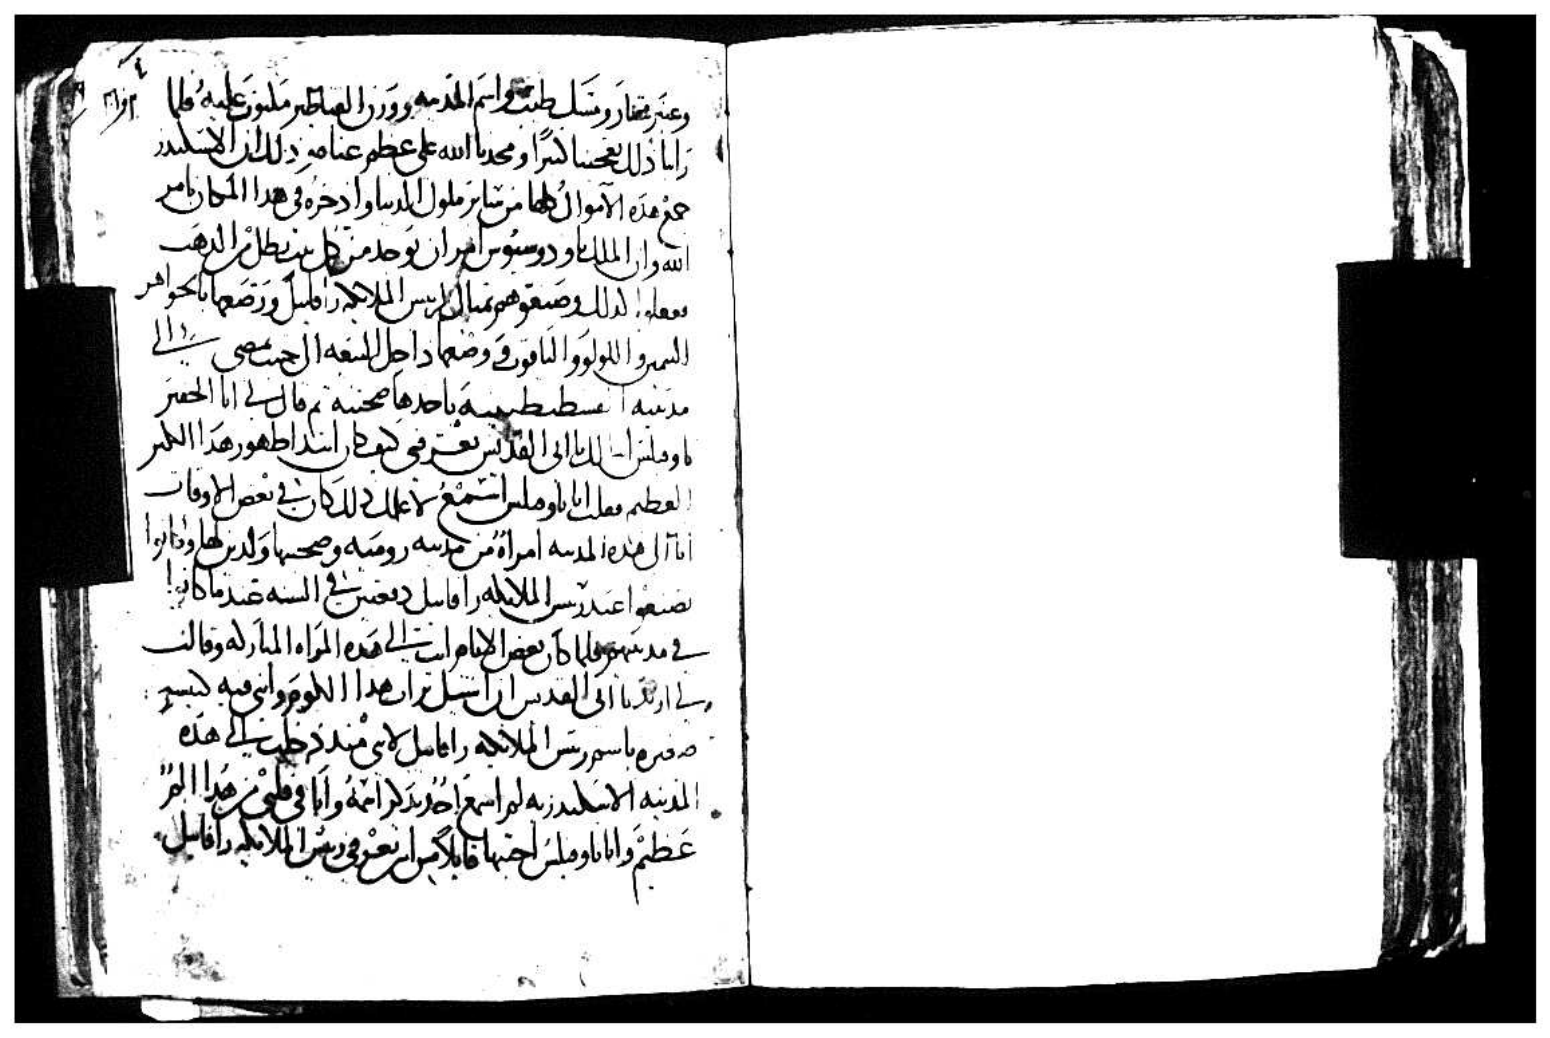 وعنبر مختار ومسك طيب واسم المدينه ووزن القناطير مكتوب عليه فلما
راينا ذلك تعجبنا كثيرًا ومجدنا الله على عظم عنايته وذلك ان الاسكندر
جمع هذه الاموال كلها من سائر ملوك الدنيا وادخره فى هذا المكان بامر
الله وان الملك تاودوسيوس امر ان يوخد من كل بيت رطل من الدهب
ففعلوا لدلك وصنعوهم تمثال لريس الملايكه رافاييل ورصعها بالجواهر
التمين واللولو والياقوت ووضعها داخل البيعه الى حيت مضى الى
مدينه القسطنطينيه ياخدها صحبته تم قال لى انا الحقير
تاوفيلس اسالك يا ابى القديس تعرفنى كيف كان ابتدا ظهور هدا الكنز
العظيم فقلت انا تاوفيلس استمع لاعلمك دلك كان فى بعض الاوقات
اتا الى هذه المدينه امراه من مدينه روميه وصحبتها ولدين لها وكانوا
يصنعوا عيد ريس الملايكه رافاييل دفعتين فى السنه عندما كانوا
فى مدينتهم فلما كان بعض الايام اتت الى هذه المراه المباركه وقالت
لى اريد يا ابى القديس ان اشيل تراب هدا الكوم وابنى فيه كنيسه
صغيره باسم ريس الملايكه رافاييل لانى منذ دخلت الى هذه
المدينه الاسكندريه لم اسمع احد يذكر اسمه وانا فى قلبى من هدا المر
عظيم وانا تاوفيلس اجبتها قايلا من اين تعرفى ريس الملايكه رافاييل